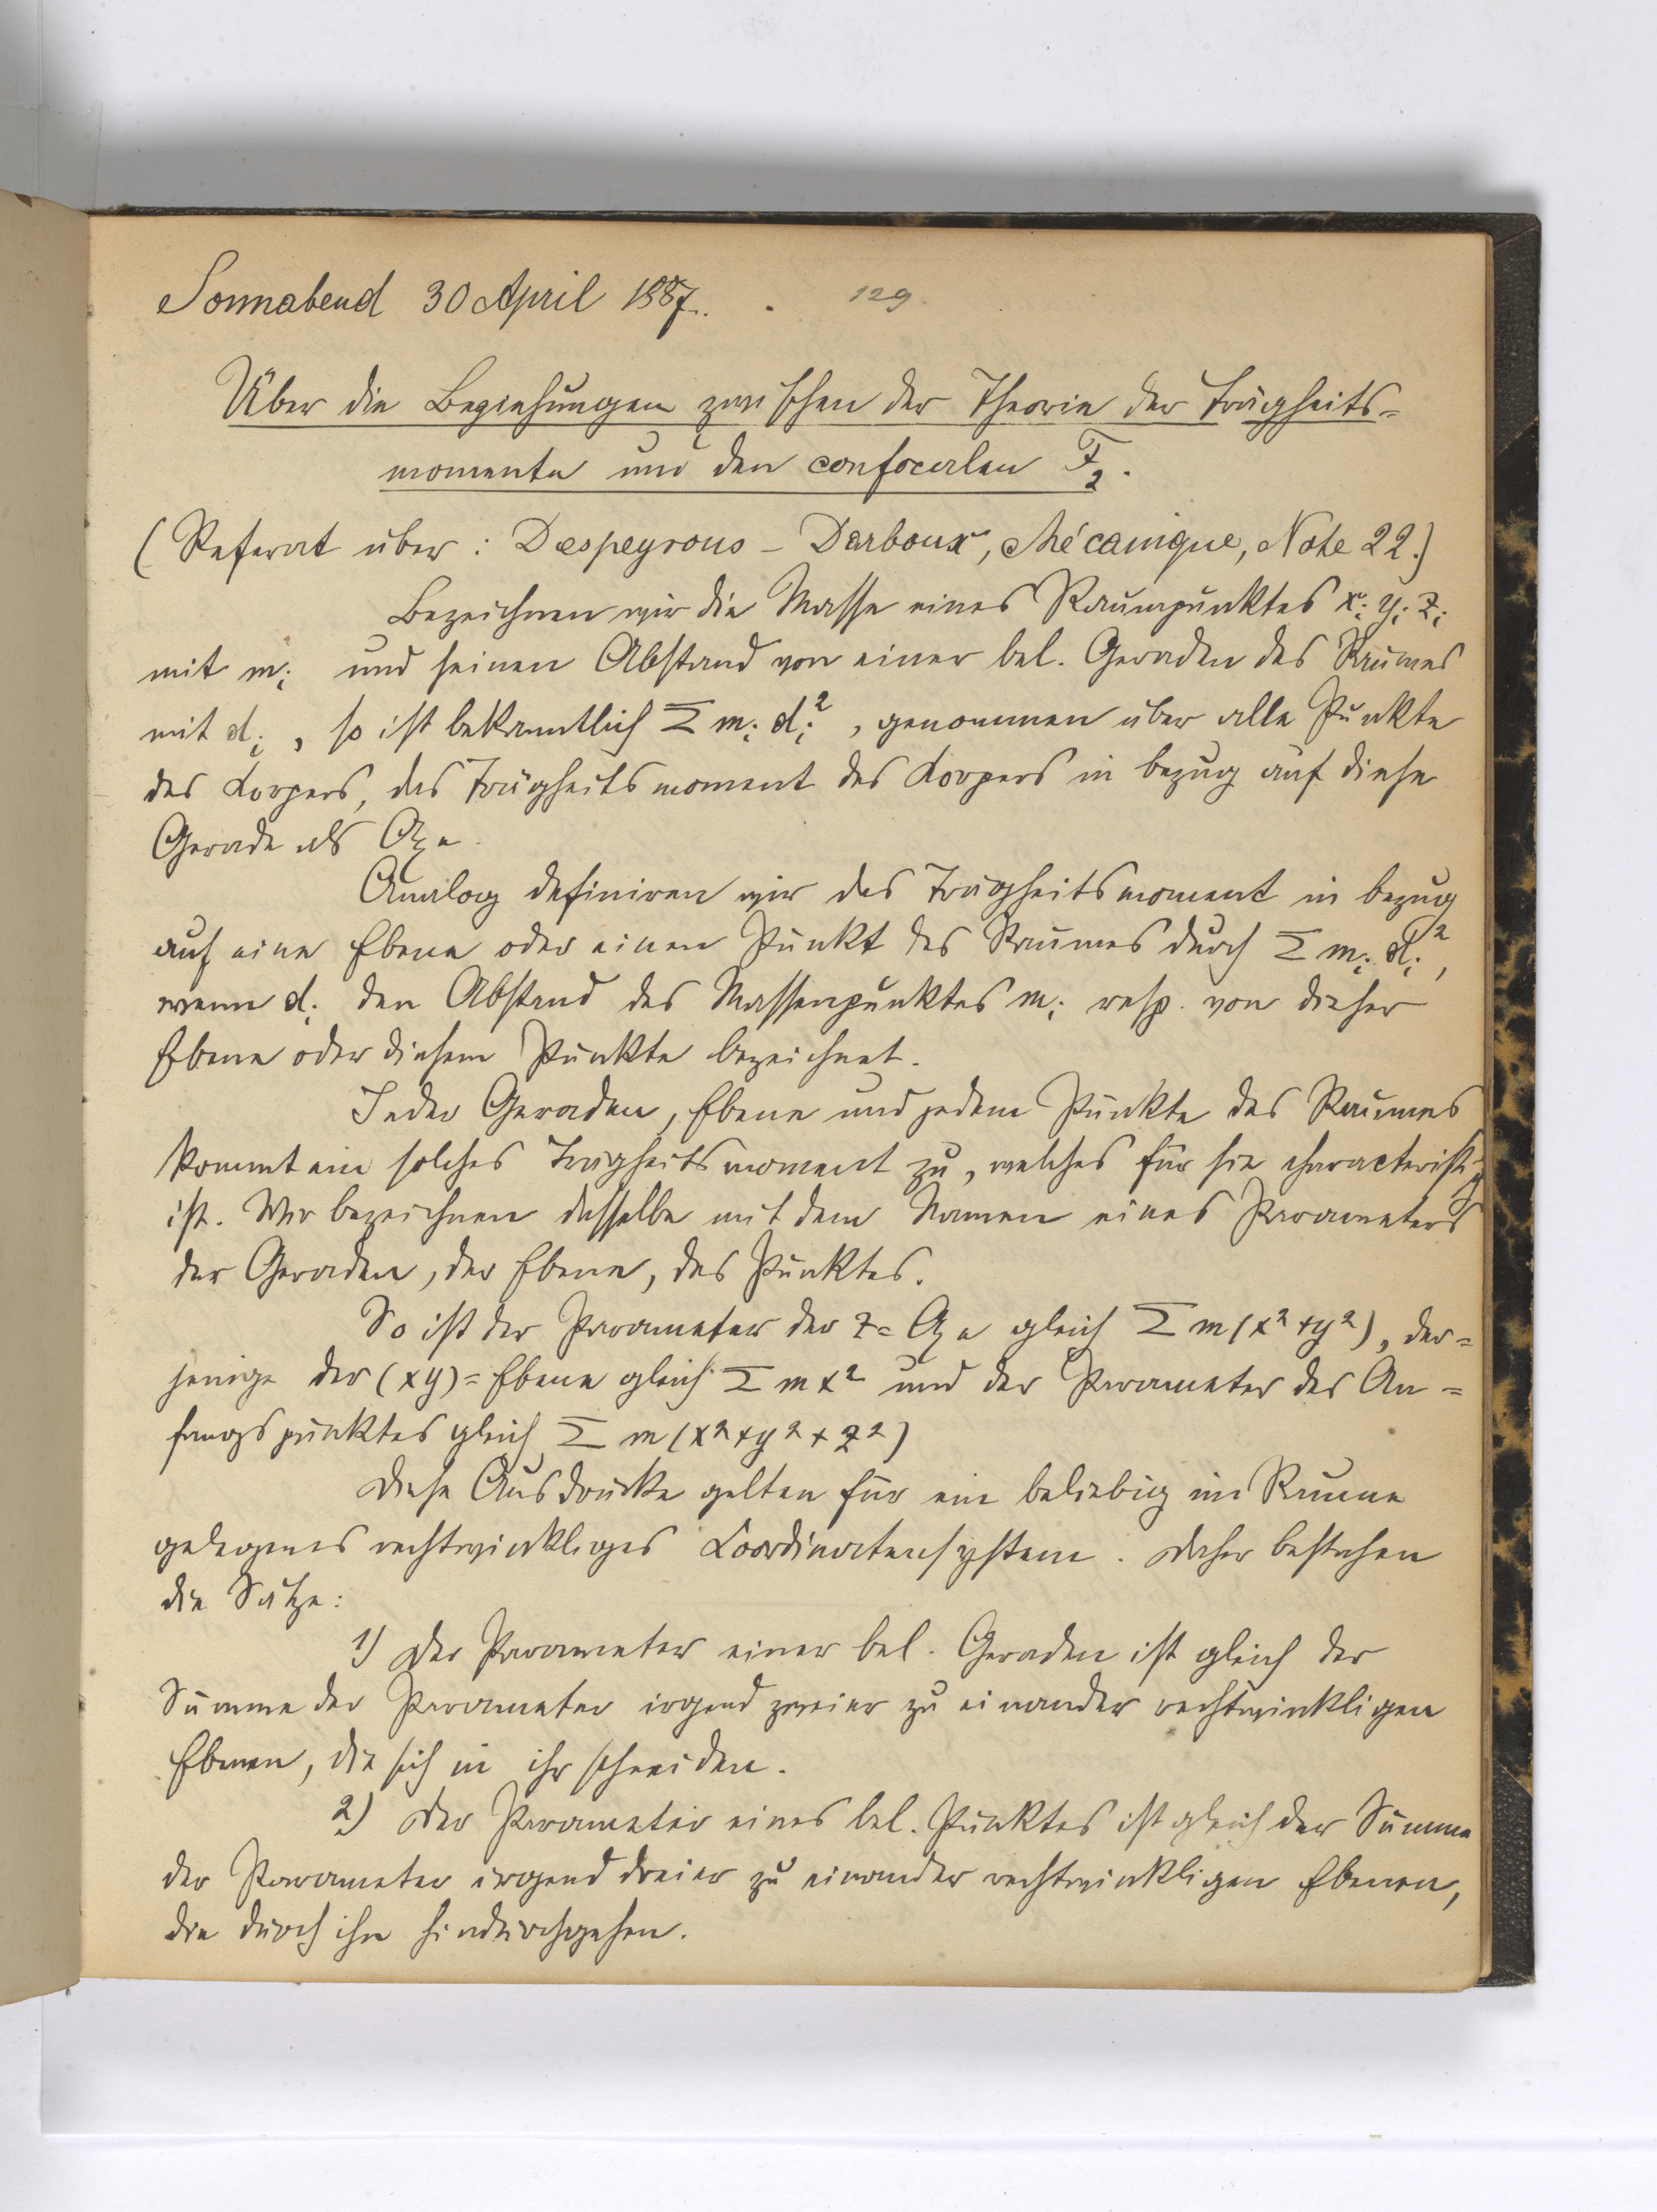 Sonnabend 30 April 1887. 129.
Über die Beziehungen zwischen der Theorie der Trägheits=
momente und den confocalen F₂.
(Referat über: Despeyrous - Darboux, Mécanique, Note 22.)
Bezeichnen wir die Masse eines Raumpunktes xᵢ yᵢ zᵢ
mit mᵢ und seinen Abstand von einer bel. Geraden des Raumes
mit dᵢ, so ist bekanntlich Σ mᵢ dᵢ², genommen über alle Punkte
des Körpers, das Trägheitsmoment des Körpers in bezug auf diese
Gerade als Axe.
Analog definiren wir das Trägheitsmoment in bezug
auf eine Ebene oder einen Punkt des Raumes durch Σ mᵢ dᵢ²,
wenn dᵢ den Abstand des Massenpunktes mᵢ resp. von dieser
Ebene oder diesem Punkte bezeichnet.
Jeder Geraden, Ebene und jedem Punkte des Raumes
kommt ein solches Trägheitsmoment zu, welches für sie characteristisch
ist. Wir bezeichnen dasselbe mit dem Namen eines Parameters
der Geraden, der Ebene, des Punktes.
So ist der Parameter der z=Axe gleich Σ m (x²+y²), der=
jenige der (xy)=Ebene gleich Σ m x² und der Parameter des An=
fangspunktes gleich Σ m (x²+y²+z²)
Diese Ausdrücke gelten für ein beliebig im Raume
gelegenes rechtwinkliges Coordinatensystem. Daher bestehen
die Sätze:
1) Der Parameter einer bel. Geraden ist gleich der
Summe der Parameter irgend zweier zu einander rechtwinkligen
Ebenen, die sich in ihr schneiden.
2) Der Parameter eines bel. Punktes ist gleich der Summe
der Parameter irgend dreier zu einander rechtwinkligen Ebenen,
die durch ihn hindurchgehen.